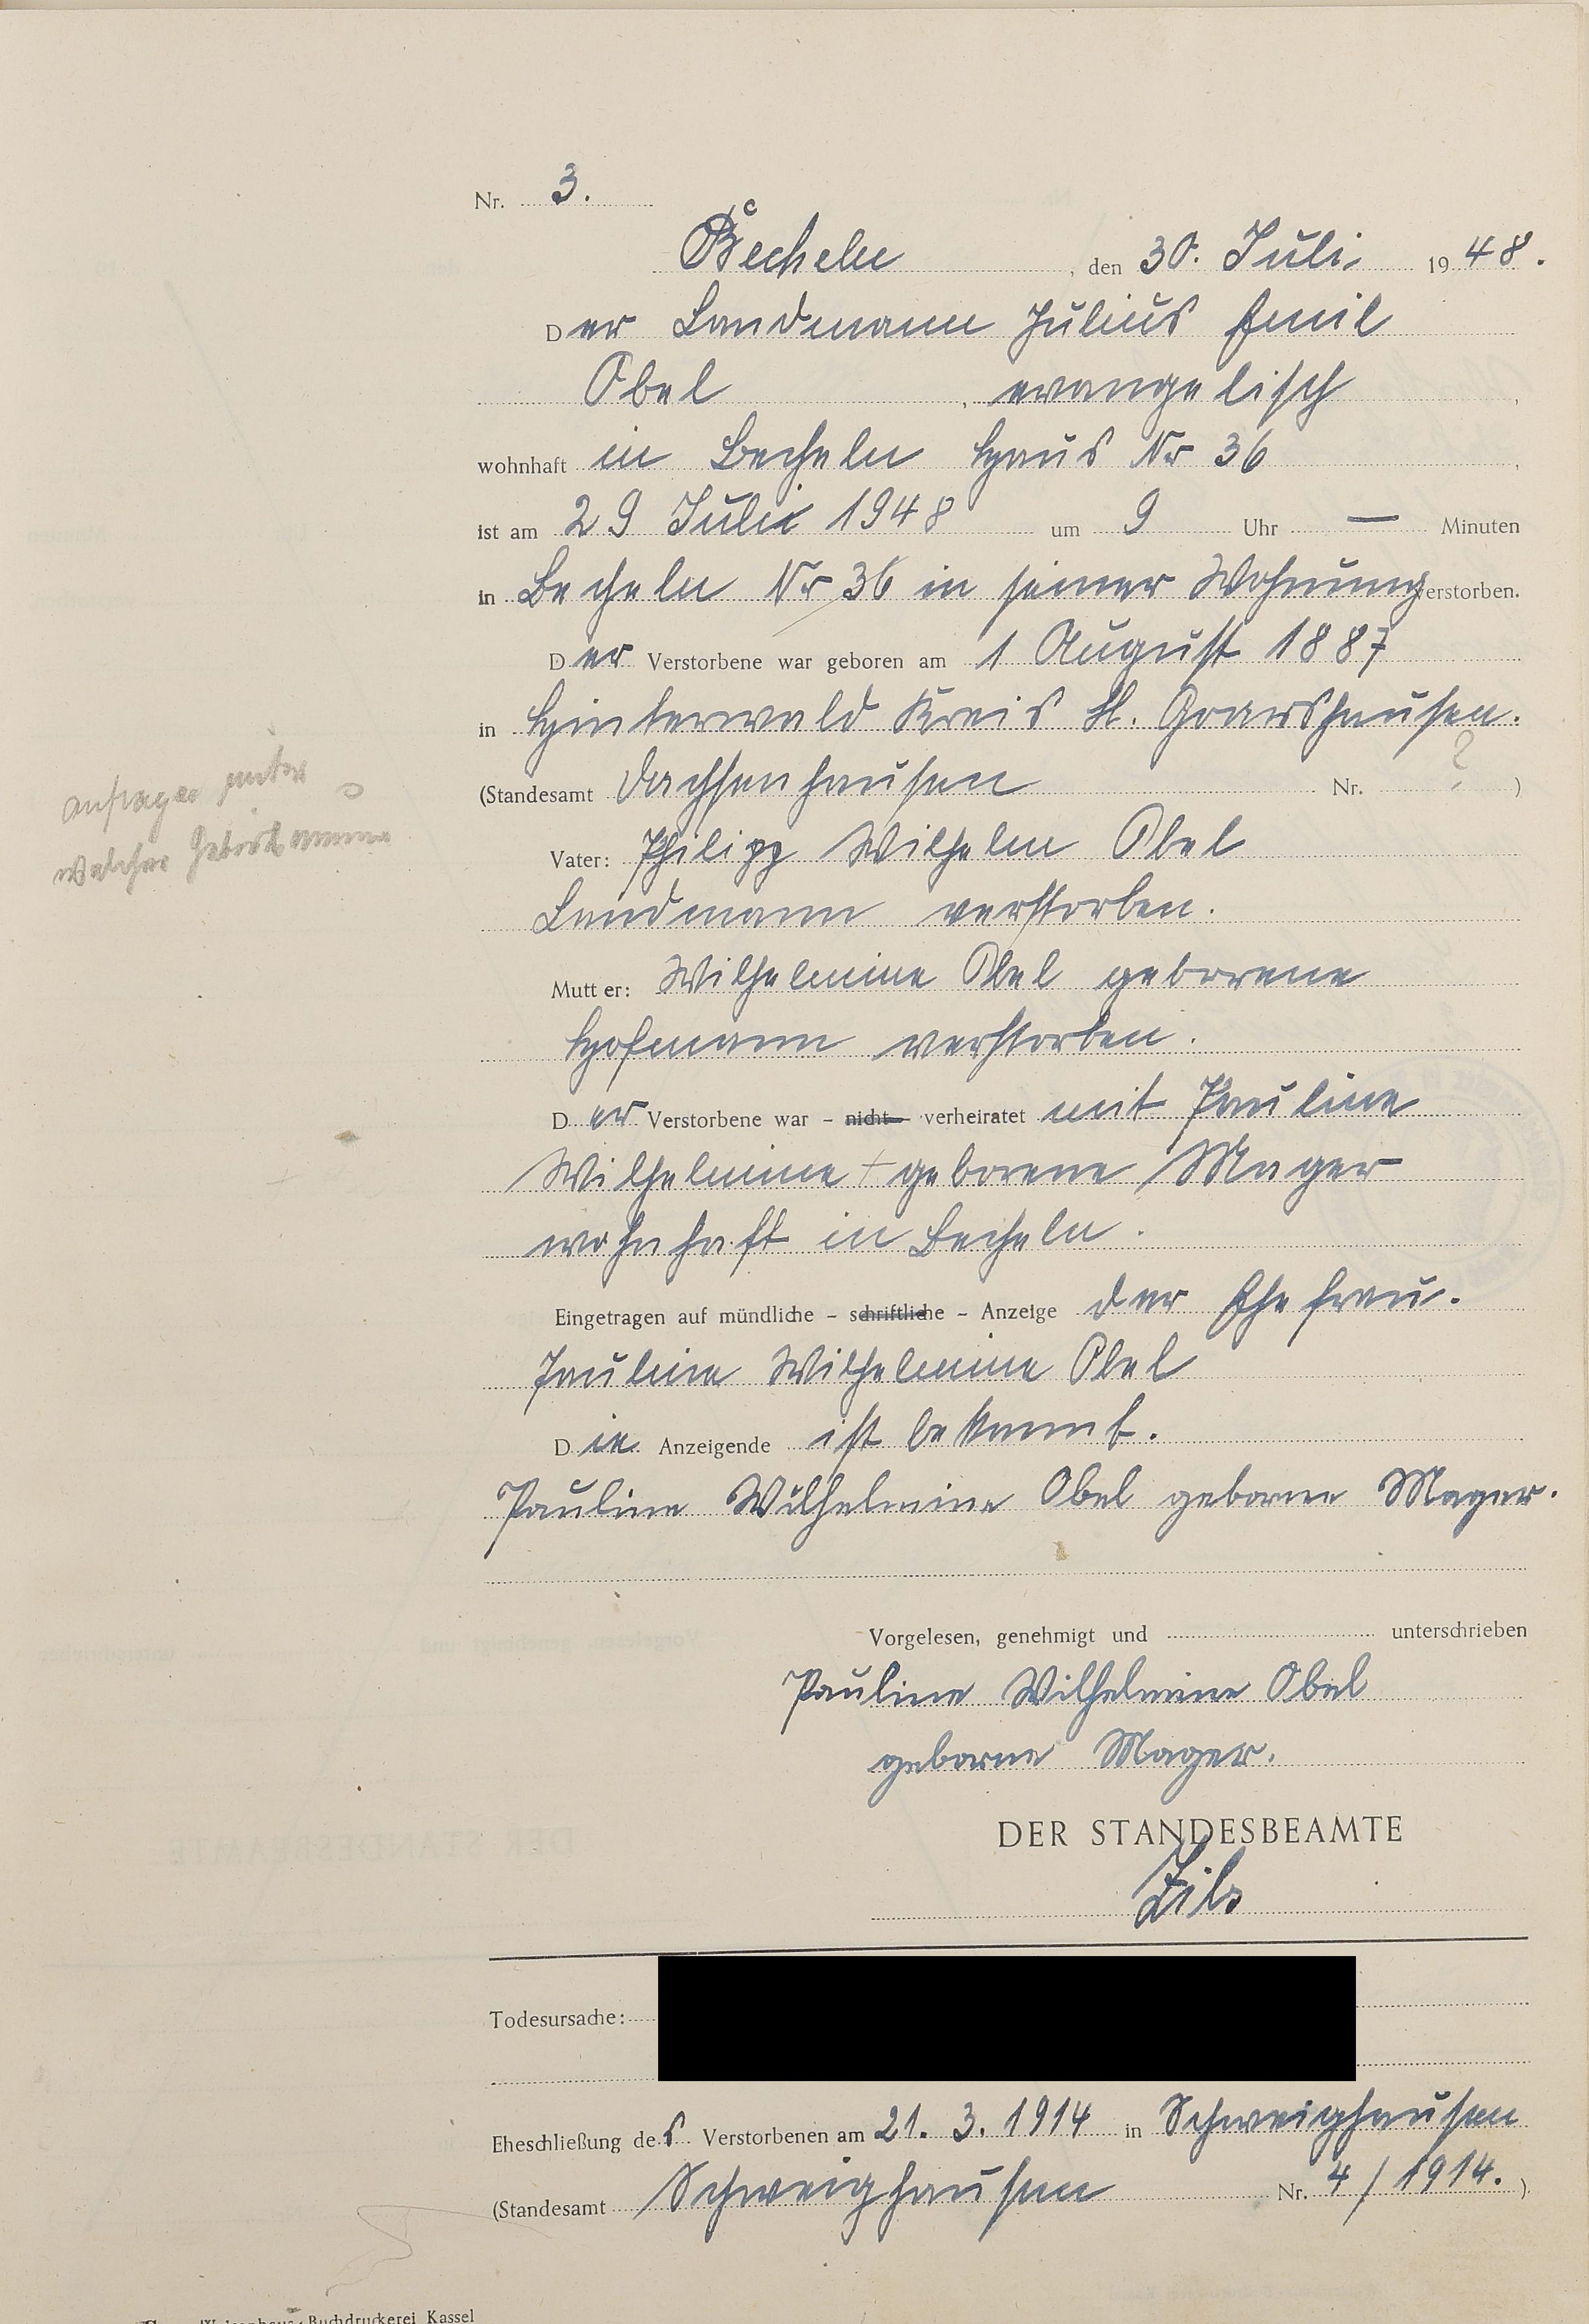 Nr. 3.
Becheln, den 30. Juli 1948.
Der Landmann Julius Emil
Obel, evangelisch,
wohnhaft in Becheln Haus Nr 36,
ist am 29 Juli 1948 um 9 Uhr — Minuten
in Becheln Nr 36 in seiner Wohnung verstorben.
Der Verstorbene war geboren am 1 August 1887
in Hinterwald Kreis St. Goarshausen.
(Standesamt Dachsenhausen Nr. ? )
anfragen unter
welcher Geburtsnummer
Vater: Philipp Wilhelm Obel
Landmann verstorben.
Mutter: Wilhelmine Obel geborene
Hofmann verstorben.
Der Verstorbene war – nicht – verheiratet mit Pauline
Wilhelmine + geborene Mager
wohnhaft in Becheln.
Eingetragen auf mündliche – schriftliche – Anzeige der Ehefrau.
Pauline Wilhelmine Obel
Die Anzeigende ist bekannt.
Pauline Wilhelmine Obel geborne Mager.
Vorgelesen, genehmigt und unterschrieben
Pauline Wilhelmine Obel
geborne Mager.
DER STANDESBEAMTE
Todesursache:
Eheschließung des Verstorbenen am 21. 3. 1914 in Schweighausen
(Standesamt Schweighausen Nr. 4/1914.)
Buchdruckerei Kassel